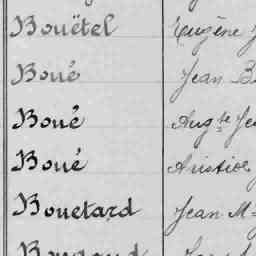 Bouëtel Eugène
Boué Jean B
Boué Aug.te Je
Boué Aristide
Bouetard Jean M